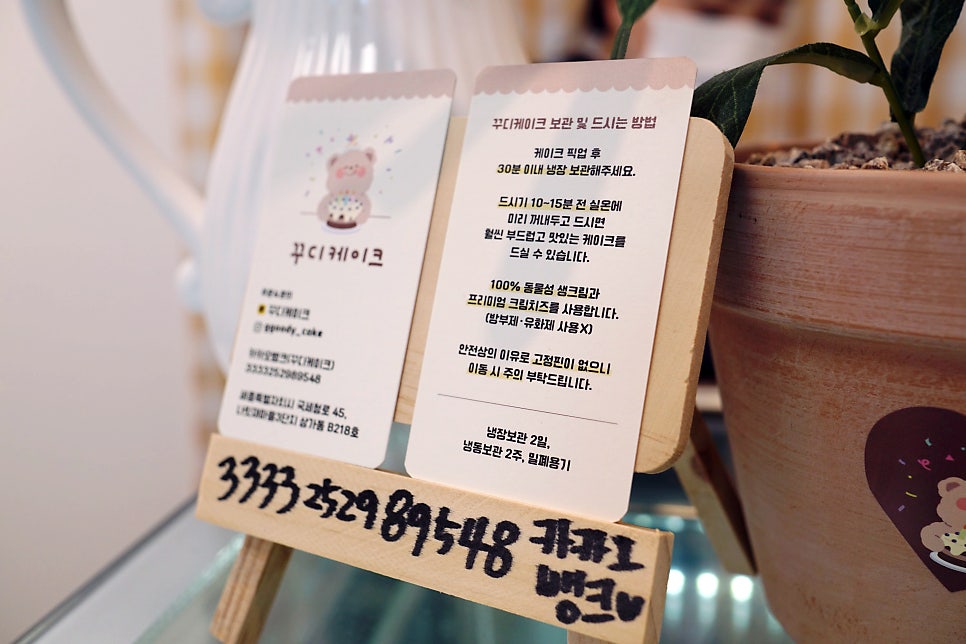 꾸디케이크
주문&문의
꾸디케이크
@ggoody_cake
카카오뱅크(꾸디케이크)
3333252989548
세종특별자치시 국세청로 45,
나릿재마을3단지 상가동 B218호
꾸디케이크 보관 및 드시는 방법
케이크 픽업 후
30분 이내 냉장 보관해주세요.
드시기 10~15분 전 실온에
미리 꺼내두고 드시면
훨씬 부드럽고 맛있는 케이크를
드실 수 있습니다.
100% 동물성 생크림과
프리미엄 크림치즈를 사용합니다.
(방부제·유화제 사용X)
안전상의 이유로 고정핀이 없으니
이동 시 주의 부탁드립니다.
냉장보관 2일,
냉동보관 2주, 밀폐용기
3333 2529 89548 카카오
뱅크♥